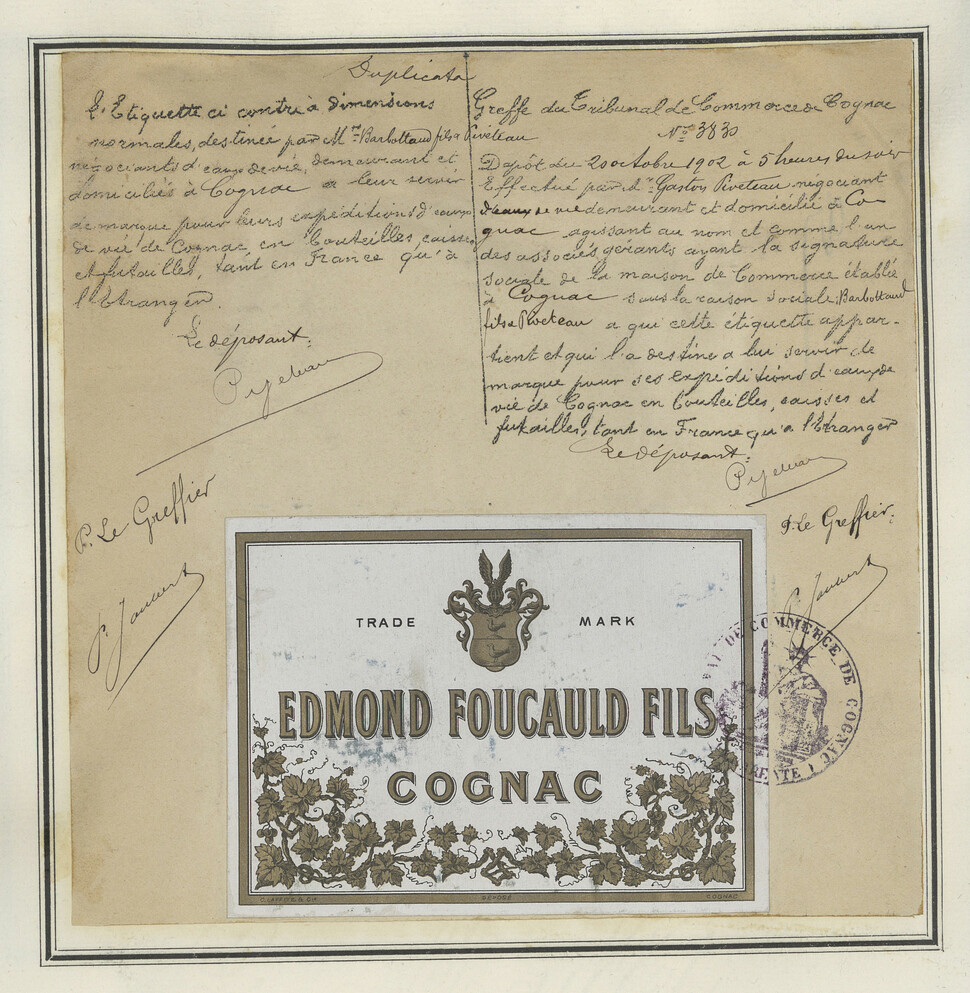 Duplicata
L'Etiquette ci contre à dimensions
normales, destinée par Mrs Barbottaud fils & Piveteau
négociants d'eaux de vie, demeurant et
domiciliés à Cognac a leur servir
de marque pour leurs expéditions d'eaux
de vie de Cognac en bouteilles, caisses
et futailles, tant en France qu'à
l'Etranger.
Le déposant:
P. Le Greffier
Greffe du Tribunal de Commerce de Cognac
No 3830
Dépôt du 20 octobre 1902 à 5 heures du soir
Effectué par Mr Gaston Piveteau négociant
d'eaux de vie demeurant et domicilié à Co-
gnac agissant au nom et comme l'un
des associés gérants ayant la signature
sociale de la maison de Commerce établie
à Cognac sous la raison sociale: Barbottaud
fils & Piveteau a qui cette étiquette appar-
tient et qui l'a destine a lui servir de
marque pour ses expéditions d'eaux de
vie de Cognac en bouteilles, caisses et
futailles, tant en France qu'a l'Etranger
Le déposant:
P. Le Greffier:
TRADE MARK
EDMOND FOUCAULD FILS
COGNAC
DÉPOSÉ
COGNAC
DE COMMERCE DE COGNAC